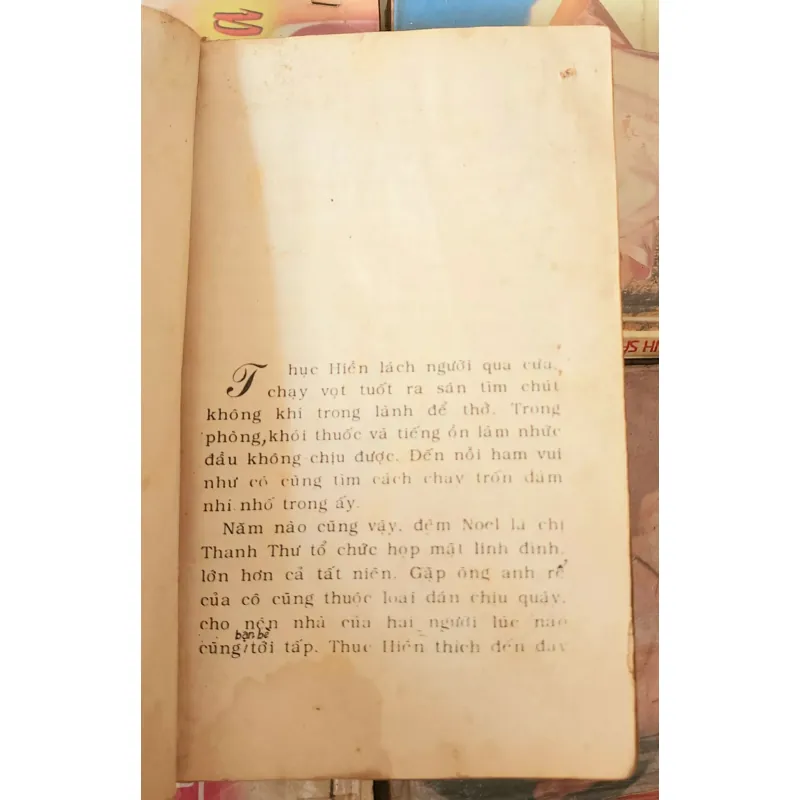 Thục Hiền lách người qua cửa,
chạy vọt tuốt ra sân tìm chút
không khí trong lành để thở. Trong
phòng, khói thuốc và tiếng ồn làm nhức
đầu không chịu được. Đến nỗi ham vui
như cô cũng tìm cách chạy trốn đám
nhí nhố trong ấy.
Năm nào cũng vậy, đêm Noel là chị
Thanh Thư tổ chức họp mặt linh đình,
lớn hơn cả tất niên. Gặp ông anh rể
của cô cũng thuộc loại dân chịu quậy,
cho nên nhà của hai người lúc nào
bạn bè
cũng tới tấp. Thục Hiền thích đến đây